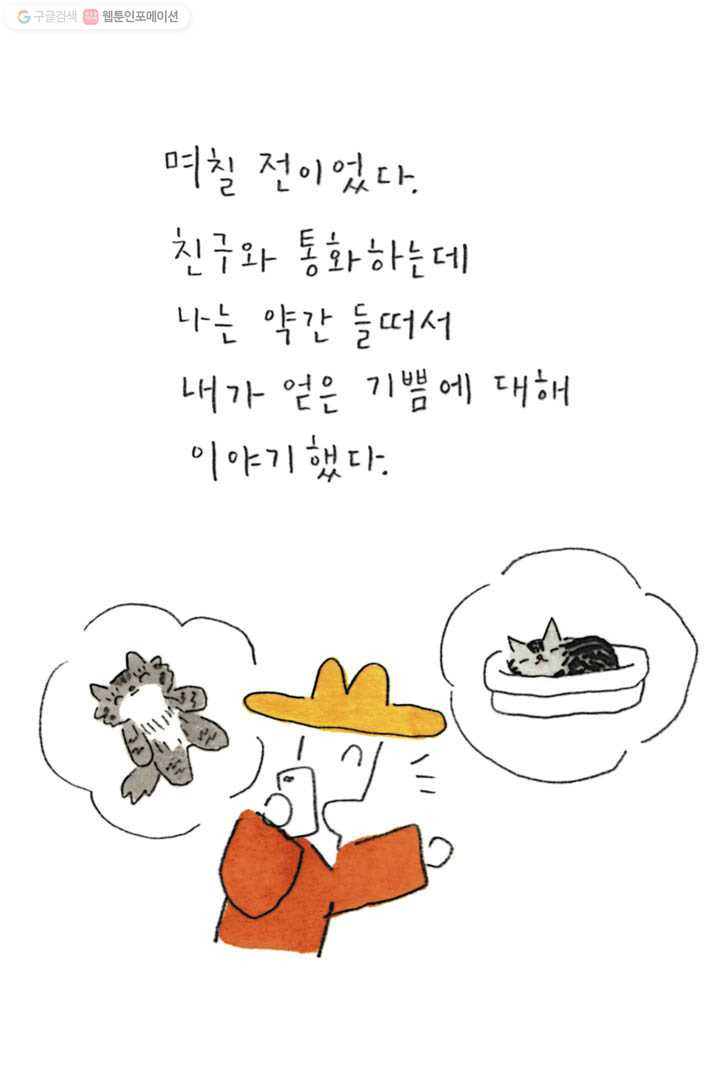 구글검색 웹툰인포메이션
며칠 전이었다.
친구와 통화하는데
나는 약간 들떠서
내가 얻은 기쁨에 대해
이야기했다.